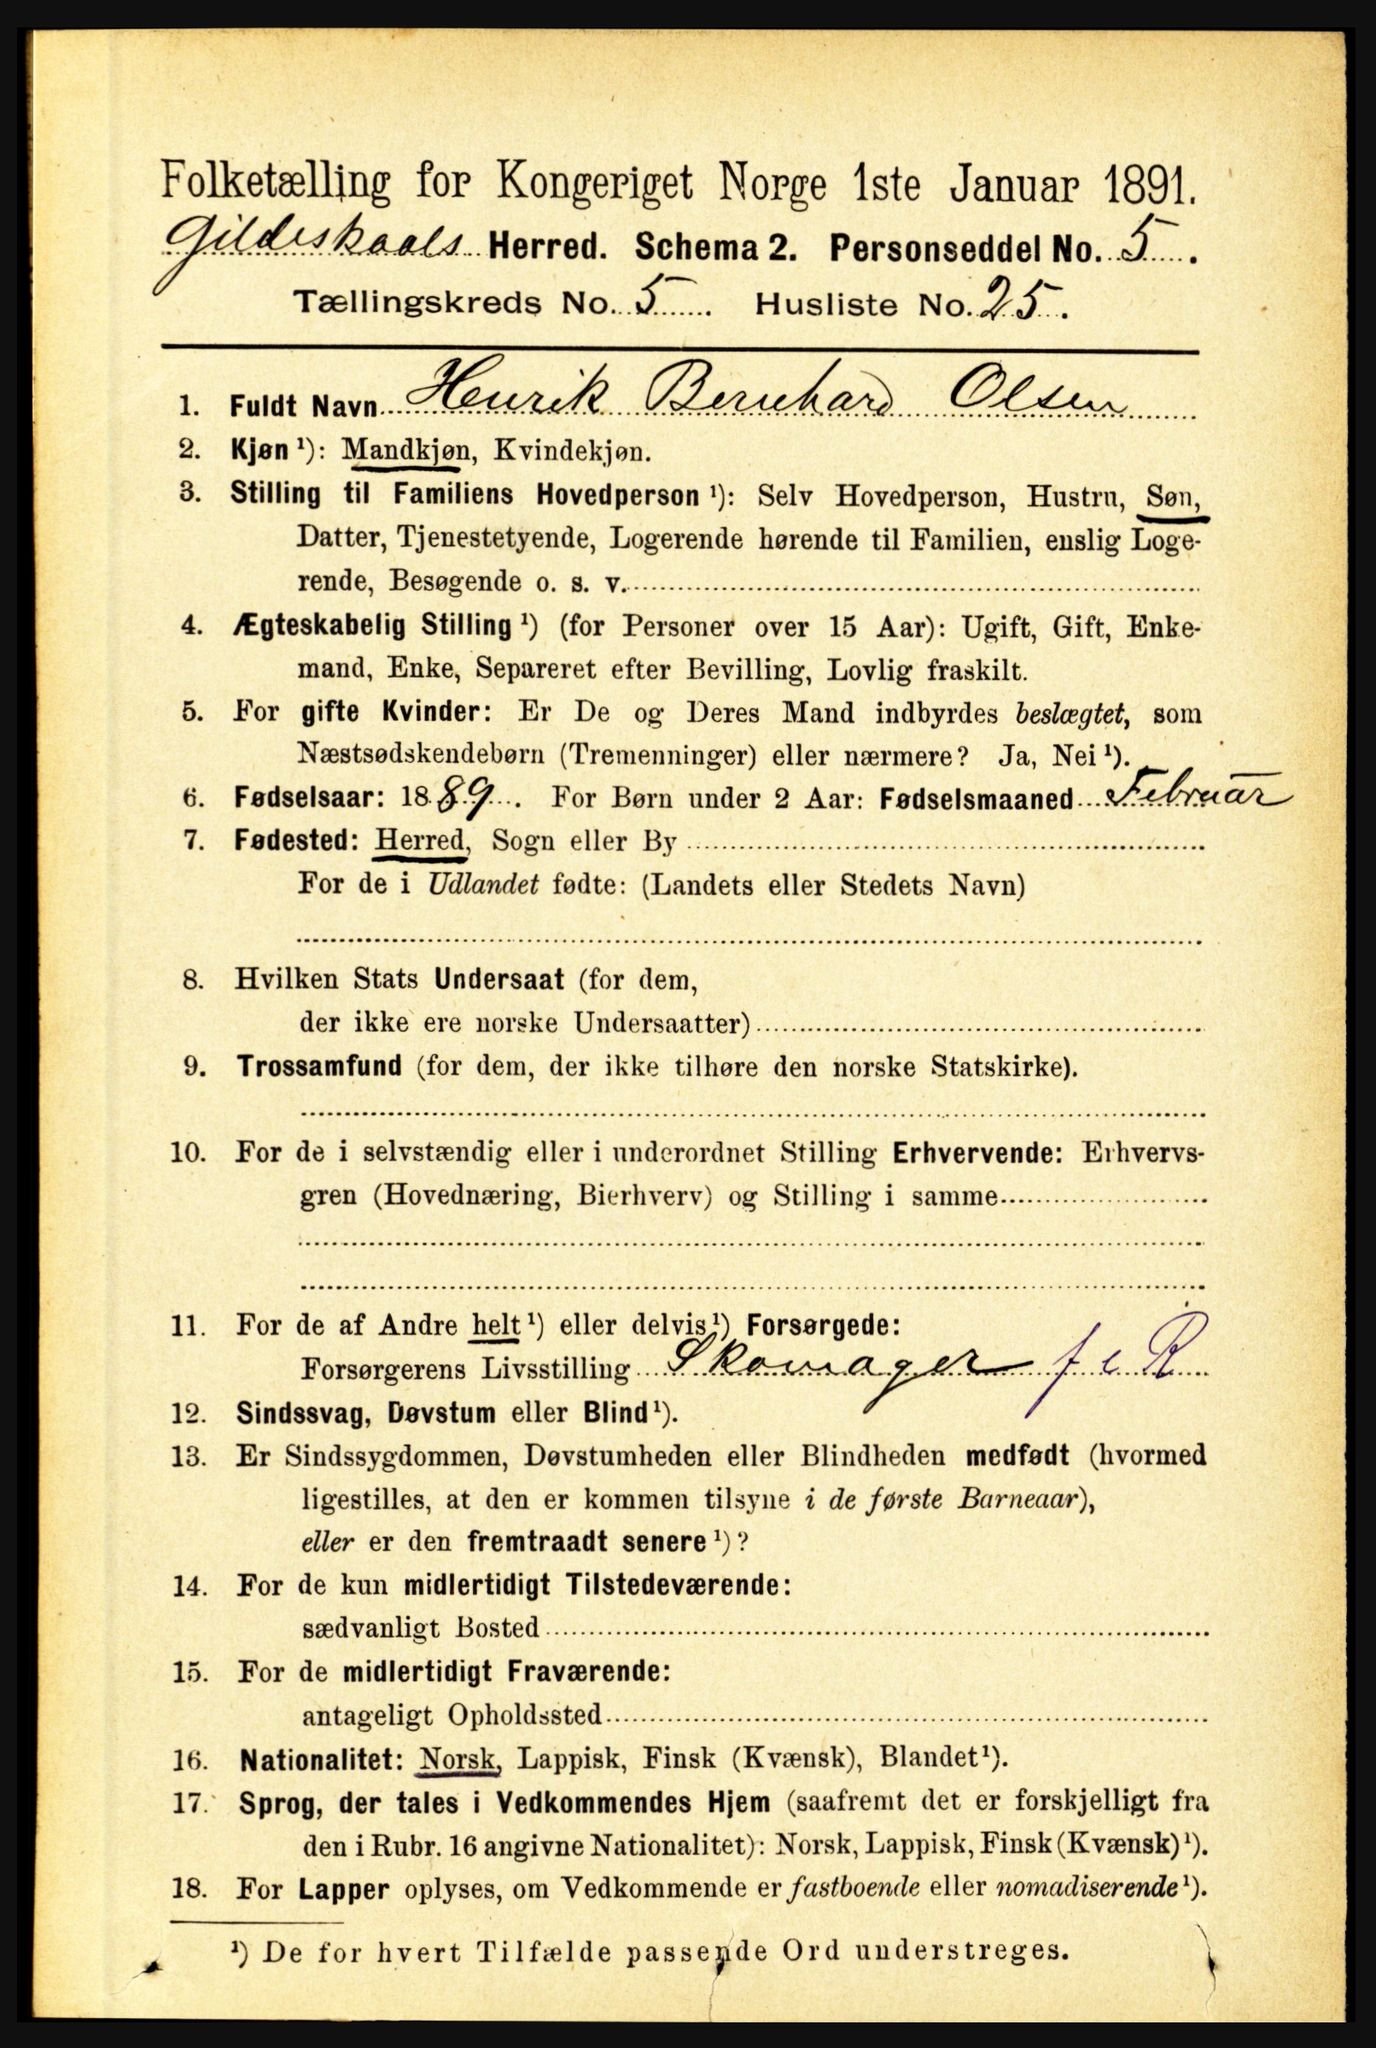 Folketælling for Kongeriget Norge 1ste Januar 1891.
Gildeskaals Herred. Schema 2. Personseddel No. 5.
Tællingskreds No. 5. Husliste No. 25.
1. Fuldt Navn Henrik Bernhard Olsen
2. Kjøn ¹): Mandkjøn, Kvindekjøn.
3. Stilling til Familiens Hovedperson ¹): Selv Hovedperson, Hustru, Søn,
Datter, Tjenestetyende, Logerende hørende til Familien, enslig Loge-
rende, Besøgende o. s. v.
4. Ægteskabelig Stilling ¹) (for Personer over 15 Aar): Ugift, Gift, Enke-
mand, Enke, Separeret efter Bevilling, Lovlig fraskilt.
5. For gifte Kvinder: Er De og Deres Mand indbyrdes beslægtet, som
Næstsødskendebørn (Tremenninger) eller nærmere? Ja, Nei ¹).
6. Fødselsaar: 1889. For Børn under 2 Aar: Fødselsmaaned Februar
7. Fødested: Herred, Sogn eller By
For de i Udlandet fødte: (Landets eller Stedets Navn)
8. Hvilken Stats Undersaat (for dem,
der ikke ere norske Undersaatter)
9. Trossamfund (for dem, der ikke tilhøre den norske Statskirke).
10. For de i selvstændig eller i underordnet Stilling Erhvervende: Erhvervs-
gren (Hovednæring, Bierhverv) og Stilling i samme
11. For de af Andre helt ¹) eller delvis ¹) Forsørgede:
Forsørgerens Livsstilling Skomager f. e R
12. Sindssvag, Døvstum eller Blind ¹).
13. Er Sindssygdommen, Døvstumheden eller Blindheden medfødt (hvormed
ligestilles, at den er kommen tilsyne i de første Barneaar),
eller er den fremtraadt senere ¹)?
14. For de kun midlertidigt Tilstedeværende:
sædvanligt Bosted
15. For de midlertidigt Fraværende:
antageligt Opholdssted
16. Nationalitet: Norsk, Lappisk, Finsk (Kvænsk), Blandet ¹).
17. Sprog, der tales i Vedkommendes Hjem (saafremt det er forskjelligt fra
den i Rubr. 16 angivne Nationalitet): Norsk, Lappisk, Finsk (Kvænsk) ¹).
18. For Lapper oplyses, om Vedkommende er fastboende eller nomadiserende ¹).
¹) De for hvert Tilfælde passende Ord understreges.